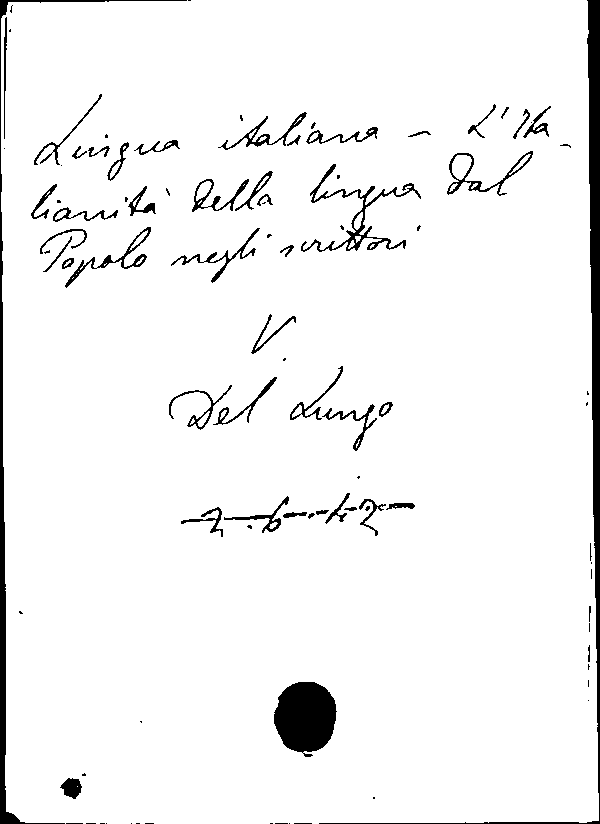 Lingua italiana – L'Ita-
lianità della lingua dal
Popolo negli scrittori
V.
Del Lungo